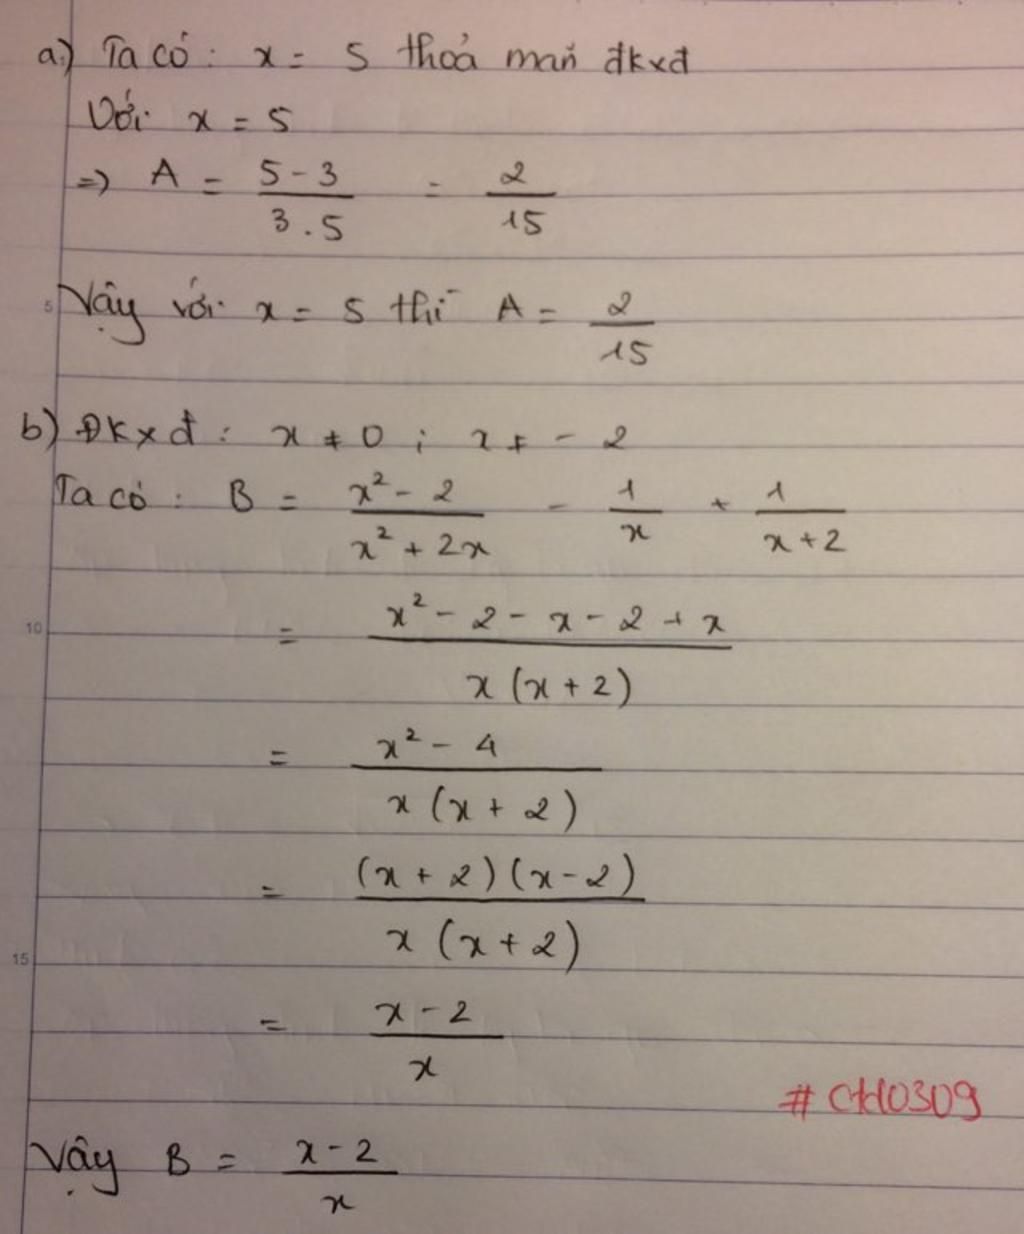 a) Ta có : x = 5 thoả mãn đkxđ
Với x = 5
=> A = (5 - 3)/(3 . 5) = 2/15
5
Vậy với x = 5 thì A = 2/15
b) ĐKxđ : x ≠ 0 ; x ≠ - 2
Ta có : B = (x² - 2)/(x² + 2x) - 1/x + 1/(x + 2)
10
= (x² - 2 - x - 2 + x)/(x (x + 2))
= (x² - 4)/(x (x + 2))
= ((x + 2) (x - 2))/(x (x + 2))
15
= (x - 2)/x
# CtH0309
Vậy B = (x - 2)/x